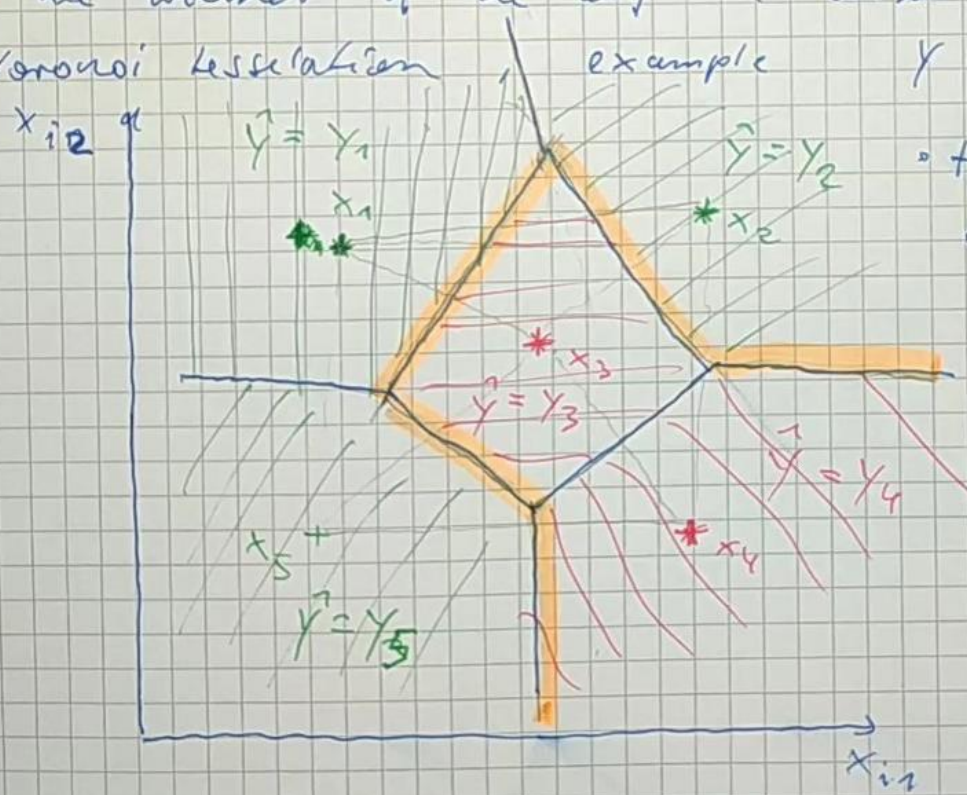 Voronoi tesselation example Y
x_i2
ŷ = y_1
ŷ = y_2
x_1
x_2
x_3
ŷ = y_3
ŷ = y_4
x_5
x_4
ŷ = y_5
x_i1